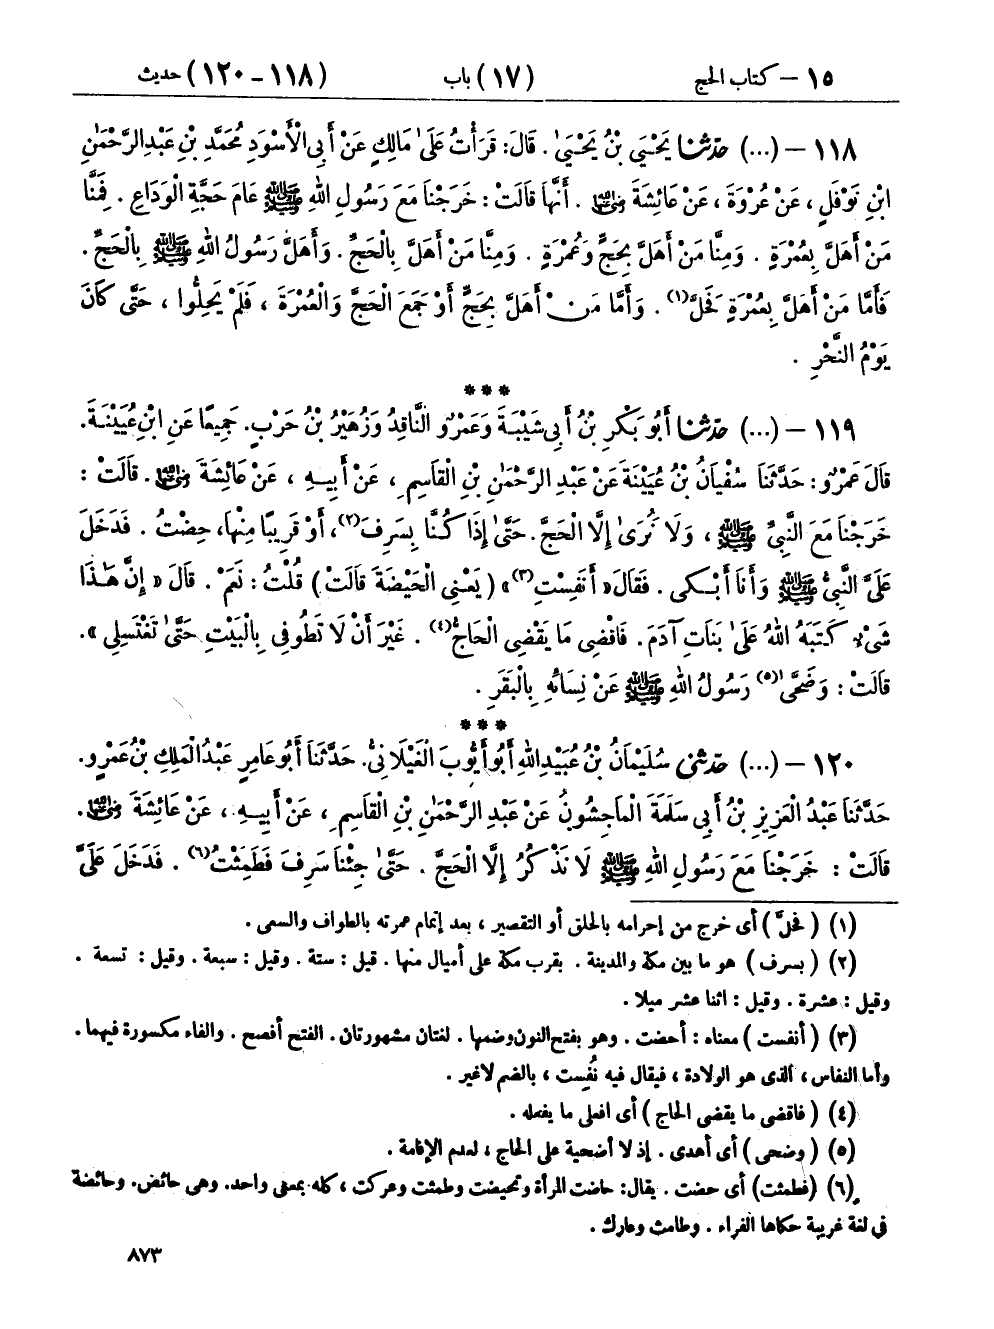 ١٥ – كتاب الحج (١٧) باب (١١٨ – ١٢٠) حديث
١١٨ – (...) حدثنا يَحْيَىٰ بْنُ يَحْيَىٰ . قَالَ: قَرَأْتُ عَلَىٰ مَالِكٍ عَنْ أَبِي الْأَسْوَدِ مُحَمَّدِ بْنِ عَبْدِ الرَّحْمَٰنِ
ابْنِ نَوْفَلٍ ، عَنْ عُرْوَةَ ، عَنْ عَائِشَةَ رضي الله عنها . أَنَّهَا قَالَتْ : خَرَجْنَا مَعَ رَسُولِ اللهِ ﷺ عَامَ حَجَّةِ الْوَدَاعِ . فَمِنَّا
مَنْ أَهَلَّ بِعُمْرَةٍ . وَمِنَّا مَنْ أَهَلَّ بِحَجٍّ وَعُمْرَةٍ . وَمِنَّا مَنْ أَهَلَّ بِالْحَجِّ . وَأَهَلَّ رَسُولُ اللهِ ﷺ بِالْحَجِّ .
فَأَمَّا مَنْ أَهَلَّ بِعُمْرَةٍ فَحَلَّ(١) . وَأَمَّا مَنْ أَهَلَّ بِحَجٍّ أَوْ جَمَعَ الْحَجَّ وَالْعُمْرَةَ ، فَلَمْ يَحِلُّوا ، حَتَّىٰ كَانَ
يَوْمُ النَّحْرِ .
***
١١٩ – (...) حدثنا أَبُو بَكْرِ بْنُ أَبِي شَيْبَةَ وَعَمْرٌو النَّاقِدُ وَزُهَيْرُ بْنُ حَرْبٍ. جَمِيعًا عَنِ ابْنِ عُيَيْنَةَ.
قَالَ عَمْرٌو: حَدَّثَنَا سُفْيَانُ بْنُ عُيَيْنَةَ عَنْ عَبْدِ الرَّحْمَٰنِ بْنِ الْقَاسِمِ ، عَنْ أَبِيهِ ، عَنْ عَائِشَةَ رضي الله عنها . قَالَتْ :
خَرَجْنَا مَعَ النَّبِيِّ ﷺ ، وَلَا نُرَىٰ إِلَّا الْحَجَّ . حَتَّىٰ إِذَا كُنَّا بِسَرِفَ(٢)، أَوْ قَرِيبًا مِنْهَا، حِضْتُ . فَدَخَلَ
عَلَيَّ النَّبِيُّ ﷺ وَأَنَا أَبْكِي . فَقَالَ « أَنَفِسْتِ(٣) » ( يَعْنِي الْحَيْضَةَ قَالَتْ ) قُلْتُ : نَعَمْ . قَالَ « إِنَّ هَٰذَا
شَيْءٌ كَتَبَهُ اللهُ عَلَىٰ بَنَاتِ آدَمَ . فَاقْضِي مَا يَقْضِي الْحَاجُّ(٤) . غَيْرَ أَنْ لَا تَطُوفِي بِالْبَيْتِ حَتَّىٰ تَغْتَسِلِي ».
قَالَتْ : وَضَحَّىٰ(٥) رَسُولُ اللهِ ﷺ عَنْ نِسَائِهِ بِالْبَقَرِ .
***
١٢٠ – (...) حدثني سُلَيْمَانُ بْنُ عُبَيْدِ اللهِ أَبُو أَيُّوبَ الْغَيْلَانِيُّ. حَدَّثَنَا أَبُو عَامِرٍ عَبْدُ الْمَلِكِ بْنُ عَمْرٍو.
حَدَّثَنَا عَبْدُ الْعَزِيزِ بْنُ أَبِي سَلَمَةَ الْمَاجِشُونُ عَنْ عَبْدِ الرَّحْمَٰنِ بْنِ الْقَاسِمِ ، عَنْ أَبِيهِ ، عَنْ عَائِشَةَ رضي الله عنها .
قَالَتْ : خَرَجْنَا مَعَ رَسُولِ اللهِ ﷺ لَا نَذْكُرُ إِلَّا الْحَجَّ . حَتَّىٰ جِئْنَا سَرِفَ فَطَمِثْتُ(٦) . فَدَخَلَ عَلَيَّ
(١) ( فحلّ ) أى خرج من إحرامه بالحلق أو التقصير ، بعد إتمام عمرته بالطواف والسعى .
(٢) ( بسرف ) هو ما بين مكة والمدينة . بقرب مكة على أميال منها . قيل : ستة . وقيل : سبعة . وقيل : تسعة .
وقيل : عشرة . وقيل : اثنا عشر ميلا .
(٣) ( أنفست ) معناه : أحضت . وهو بفتح النون وضمها . لغتان مشهورتان . الفتح أفصح . والفاء مكسورة فيهما .
وأما النفاس ، الذى هو الولادة ، فيقال فيه نُفِست ، بالضم لا غير .
(٤) ( فاقضى ما يقضى الحاج ) أى افعلى ما يفعله .
(٥) ( وضحى ) أى أهدى . إذ لا أضحية على الحاج ، لعدم الإقامة .
(٦) (فطمثت) أى حضت . يقال: حاضت المرأة وتحيضت وطمثت وعركت ، كله بمعنى واحد. وهى حائض. وحائضة
فى لغة غريبة حكاها الفراء . وطامث وعارك .
٨٧٣